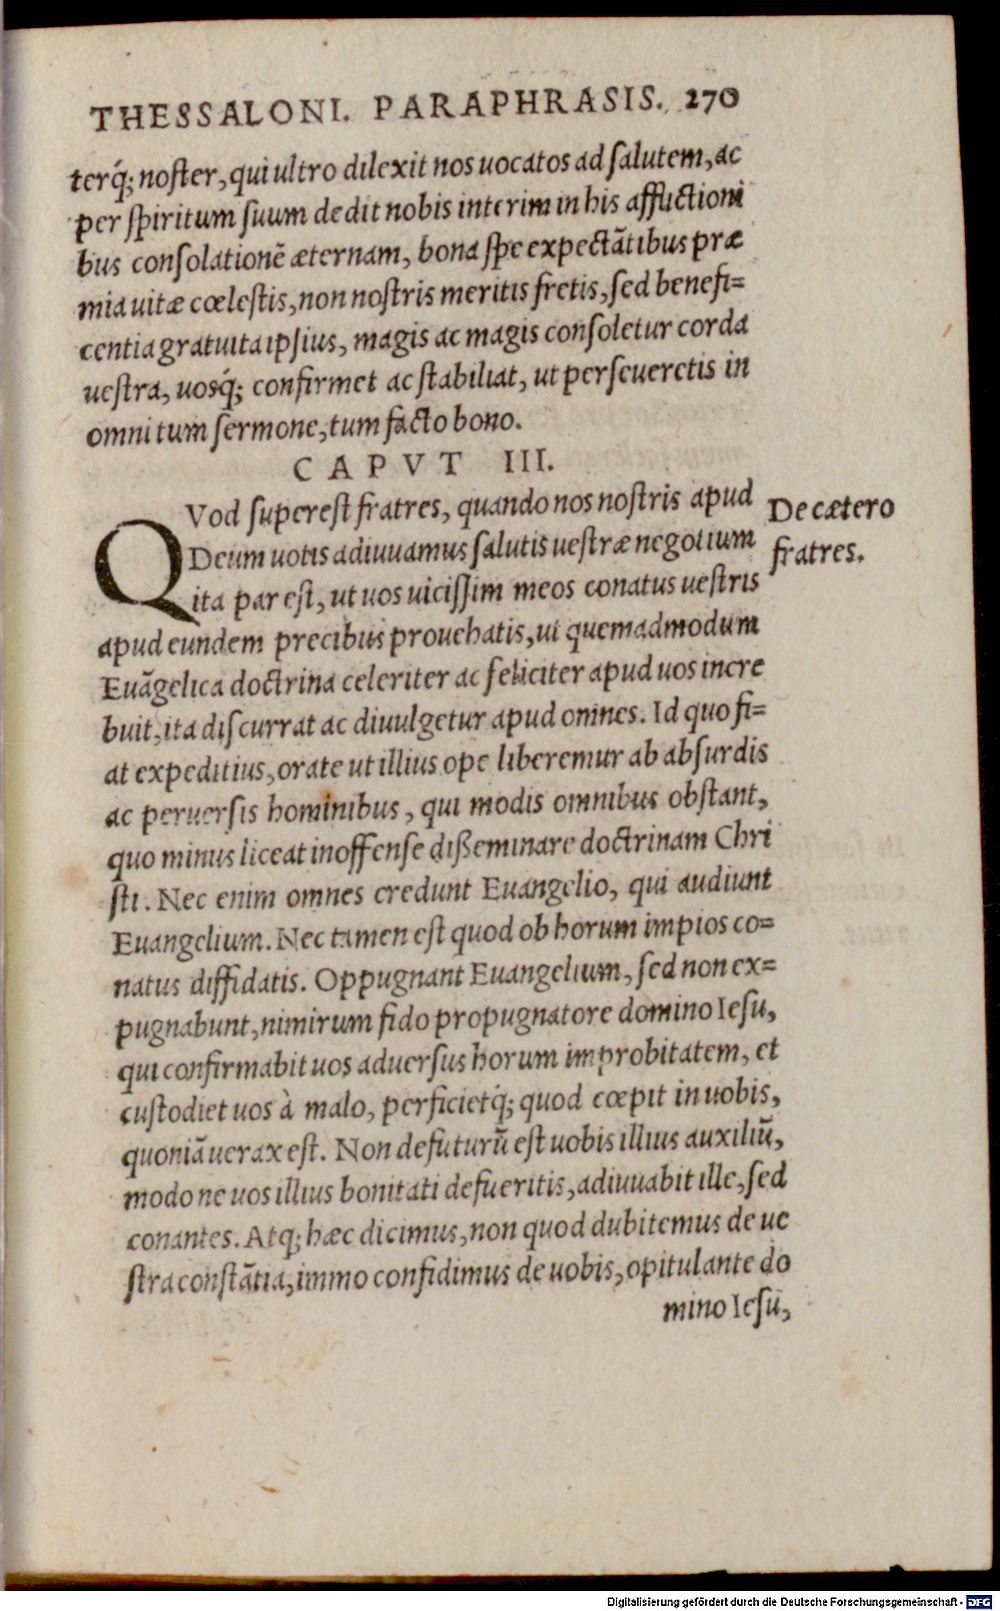 THESSALONI. PARAPHRASIS. 270
terq́; noster, qui ultro dilexit nos uocatos ad salutem, ac
per spiritum suum dedit nobis interim in his afflictioni
bus consolationẽ æternam, bona spe expectãtibus præ
mia uitæ cœlestis, non nostris meritis fretis, sed benefi=
centia gratuita ipsius, magis ac magis consoletur corda
uestra, uosq́; confirmet ac stabiliat, ut perseueretis in
omni tum sermone, tum facto bono.
CAPVT III.
QVod superest fratres, quando nos nostris apud
Deum uotis adiuuamus salutis uestræ negotium
ita par est, ut uos uicissim meos conatus uestris
apud eundem precibus prouehatis, ut quemadmodum
Euãgelica doctrina celeriter ac feliciter apud uos incre
buit, ita discurrat ac diuulgetur apud omnes. Id quo fi=
at expeditius, orate ut illius ope liberemur ab absurdis
ac peruersis hominibus, qui modis omnibus obstant,
quo minus liceat inoffense dißeminare doctrinam Chri
sti. Nec enim omnes credunt Euangelio, qui audiunt
Euangelium. Nec tamen est quod ob horum impios co=
natus diffidatis. Oppugnant Euangelium, sed non ex=
pugnabunt, nimirum fido propugnatore domino Iesu,
qui confirmabit uos aduersus horum improbitatem, et
custodiet uos à malo, perficietq́; quod cœpit in uobis,
quoniã uerax est. Non defuturũ est uobis illius auxiliũ,
modo ne uos illius bonitati defueritis, adiuuabit ille, sed
conantes. Atq; hæc dicimus, non quod dubitemus de ue
stra constãtia, immo confidimus de uobis, opitulante do
mino Iesu,
De cætero
fratres.
Digitalisierung gefördert durch die Deutsche Forschungsgemeinschaft - DFG